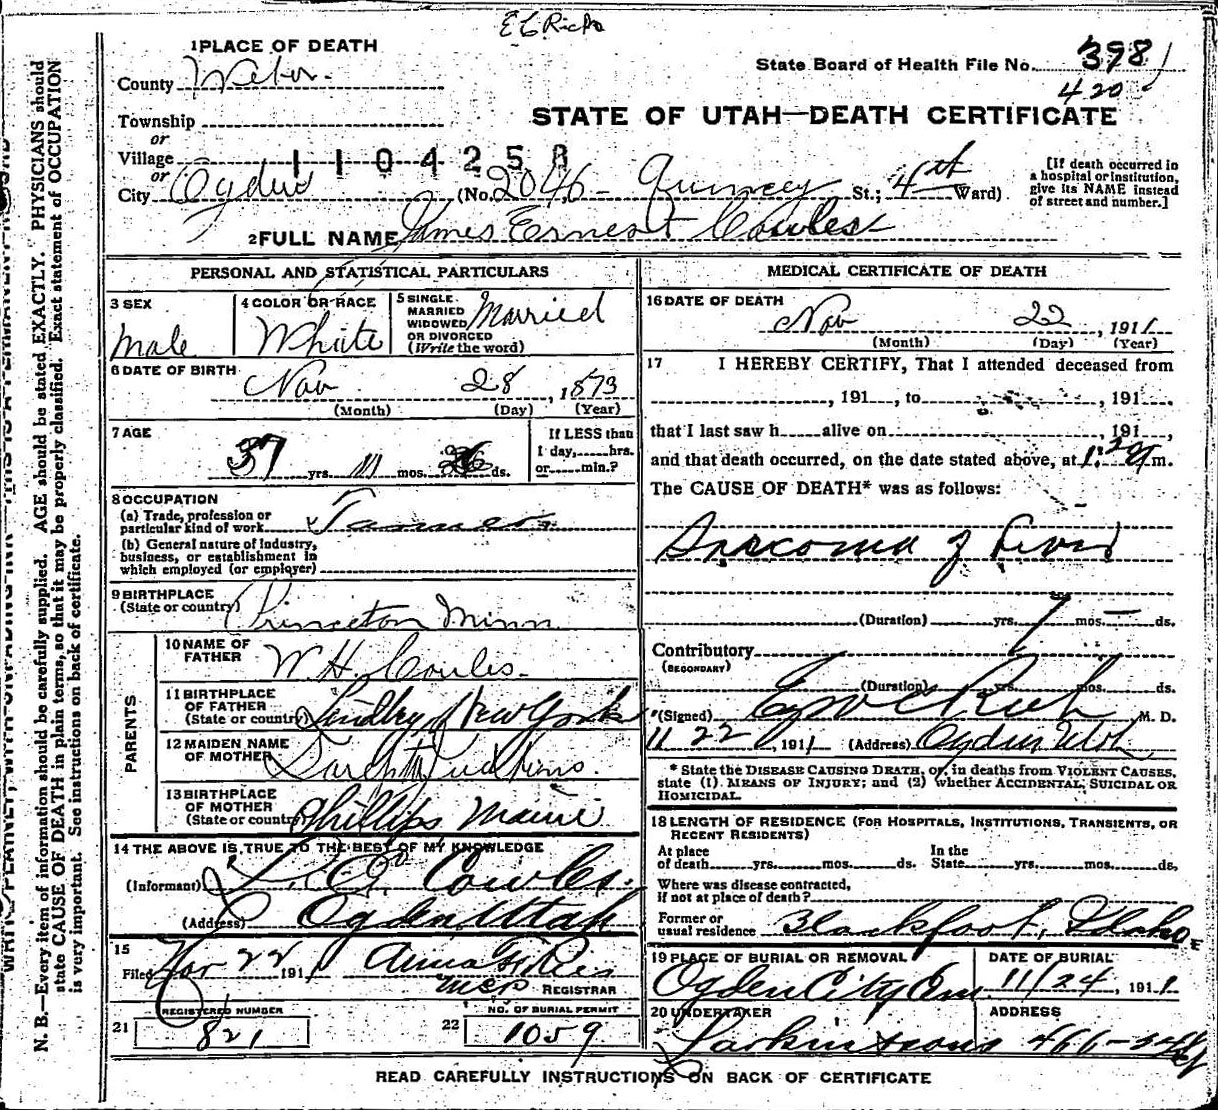 1 PLACE OF DEATH
County Weber
State Board of Health File No. 398
420
Township
or
STATE OF UTAH—DEATH CERTIFICATE
Village
or
City Ogden (No. 2046 Quincey St.; 4th Ward)
[If death occurred in
a hospital or institution,
give its NAME instead
of street and number.]
2 FULL NAME James Ernest Cowles
PERSONAL AND STATISTICAL PARTICULARS
3 SEX
Male
4 COLOR OR RACE
White
5 SINGLE
MARRIED
WIDOWED
OR DIVORCED
(Write the word)
Married
6 DATE OF BIRTH
Nov 28, 1873
(Month) (Day) (Year)
7 AGE
37 yrs. 11 mos. ds.
If LESS than
1 day, hrs.
or min.?
8 OCCUPATION
(a) Trade, profession or
particular kind of work
(b) General nature of industry,
business, or establishment in
which employed (or employer)
9 BIRTHPLACE
(State or country)
Princeton Minn
PARENTS
10 NAME OF
FATHER
W. H. Cowles.
11 BIRTHPLACE
OF FATHER
(State or country)
Lindley New York
12 MAIDEN NAME
OF MOTHER
13 BIRTHPLACE
OF MOTHER
(State or country)
Phillips Maine
14 THE ABOVE IS TRUE TO THE BEST OF MY KNOWLEDGE
(Informant) Cowles
(Address) Ogden, Utah
15
Filed Nov 22 1911 Anna
REGISTRAR
REGISTERED NUMBER
21 821
NO. OF BURIAL PERMIT
22 1059
MEDICAL CERTIFICATE OF DEATH
16 DATE OF DEATH
Nov 22, 1911
(Month) (Day) (Year)
17 I HEREBY CERTIFY, That I attended deceased from
, 191 , to , 191 ,
that I last saw h alive on , 191 ,
and that death occurred, on the date stated above, at m.
The CAUSE OF DEATH* was as follows:
Sarcoma of Liver
(Duration) yrs. 7 mos. — ds.
Contributory
(SECONDARY)
(Duration) yrs. mos. ds.
(Signed) Rich M. D.
11 22, 1911 (Address) Ogden Utah
* State the DISEASE CAUSING DEATH, or, in deaths from VIOLENT CAUSES,
state (1) MEANS OF INJURY; and (2) whether ACCIDENTAL, SUICIDAL OR
HOMICIDAL.
18 LENGTH OF RESIDENCE (FOR HOSPITALS, INSTITUTIONS, TRANSIENTS, OR
RECENT RESIDENTS)
At place
of death yrs. mos. ds.
In the
State yrs. mos. ds.
Where was disease contracted,
if not at place of death?
Former or
usual residence Blackfoot, Idaho
19 PLACE OF BURIAL OR REMOVAL
Ogden City Cem
DATE OF BURIAL
11/24, 1911
20 UNDERTAKER
Larkin & Sons
ADDRESS
READ CAREFULLY INSTRUCTIONS ON BACK OF CERTIFICATE
N. B.—Every item of information should be carefully supplied. AGE should be stated EXACTLY. PHYSICIANS should
state CAUSE OF DEATH in plain terms, so that it may be properly classified. Exact statement of OCCUPATION
is very important. See instructions on back of certificate.